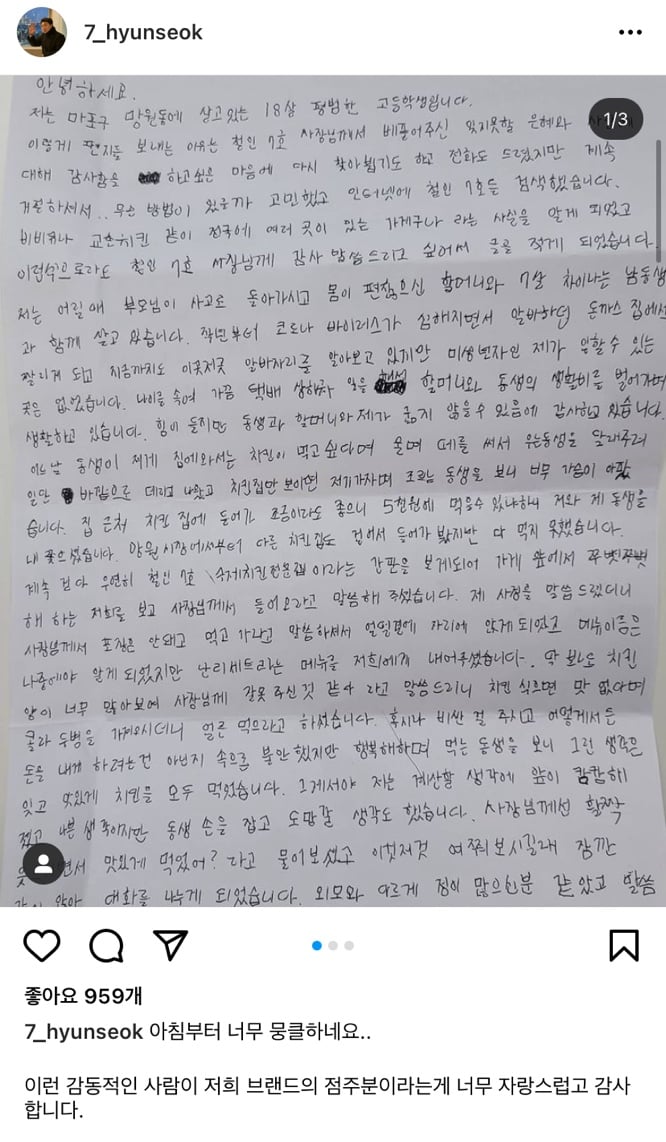 7_hyunseok
1/3
안녕하세요.
저는 마포구 망원동에 살고있는 18살 평범한 고등학생입니다.
이렇게 편지를 보내는 이유는 철인 7호 사장님께서 베풀어주신 잊지못할 은혜와
대해 감사함을 하고싶은 마음에 다시 찾아뵙기도 하고 전화도 드렸지만 계속
거절하셔서.. 무슨 방법이 있을까 고민했고 인터넷에 철인 7호를 검색했습니다.
비비큐나 교촌치킨 같이 전국에 여러 곳이 있는 가게구나 라는 사실을 알게 되었고
이런식으로라도 철인 7호 사장님께 감사 말씀드리고 싶어서 글을 적게 되었습니다.
저는 어릴때 부모님이 사고로 돌아가시고 몸이 편찮으신 할머니와 7살 차이나는 남동생
과 함께 살고 있습니다. 작년부터 코로나 바이러스가 심해지면서 알바하던 돈까스 집에서
짤리게 되고 지금까지도 이곳저곳 알바자리를 알아보고 있지만 미성년자인 제가 일할 수 있는
곳은 없었습니다. 나이를 속여 가끔 택배 상하차 일을 할머니와 동생의 생활비를 벌어가며
생활하고 있습니다. 힘이 들지만 동생과 할머니와 제가 굶지 않을수 있음에 감사하고 있습니다.
어느날 동생이 제게 집에와서는 치킨이 먹고싶다며 울며 떼를 써서 우는동생을 달래주려
일단 바깥으로 데리고 나왔고 치킨집만 보이면 저기가자며 조르는 동생을 보니 너무 가슴이 아팠
습니다. 집 근처 치킨 집에 들어가 조금이라도 좋으니 5천원에 먹을수 있냐하니 저와 제 동생을
내쫓으셨습니다. 망원시장에서부터 다른 치킨집도 걸어서 들어가 봤지만 다 먹지 못했습니다.
계속 걷다 우연히 철인 7호 수제치킨전문점이라는 간판을 보게되어 가게 앞에서 쭈뼛쭈뼛
해 하는 저희를 보고 사장님께서 들어오라고 말씀해 주셨습니다. 제 사정을 말씀 드렸더니
사장님께서 포장은 안돼고 먹고가라고 말씀하셔서 얼떨결에 자리에 앉게되었고 메뉴이름은
나중에야 알게 되었지만 난리세트라는 메뉴를 저희에게 내어주셨습니다. 딱 봐도 치킨
양이 너무 많아보여 사장님께 잘못주신것 같다 라고 말씀드리니 치킨 식으면 맛 없다며
콜라 두병을 가져오시더니 얼른 먹으라고 하셨습니다. 혹시나 비싼 걸 주시고 어떻게서든
돈을 내게 하려는건 아닌지 속으론 불안했지만 행복해하며 먹는 동생을 보니 그런 생각은
잊고 맛있게 치킨을 모두 먹었습니다. 그제서야 저는 계산할 생각에 앞이 캄캄해
졌고 나쁜생각이지만 동생 손을 잡고 도망갈 생각도 했습니다. 사장님께선 활짝
맛있게 먹었어? 라고 물어보셨고 이것저것 여쭤보시길래 잠깐
같이 앉아 대화를 나누게 되었습니다. 외모와 다르게 정이 많으신분 같았고 말씀
좋아요 959개
7_hyunseok 아침부터 너무 뭉클하네요..
이런 감동적인 사람이 저희 브랜드의 점주분이라는게 너무 자랑스럽고 감사
합니다.